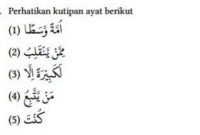 . Perhatikan kutipan ayat berikut
(1) أُمَّةً وَسَطًا
(2) مِمَّنْ يَّنْقَلِبُ
(3) لَكَبِيْرَةً اِلَّا
(4) مَنْ يَّتَّبِعُ
(5) كُنْتَ